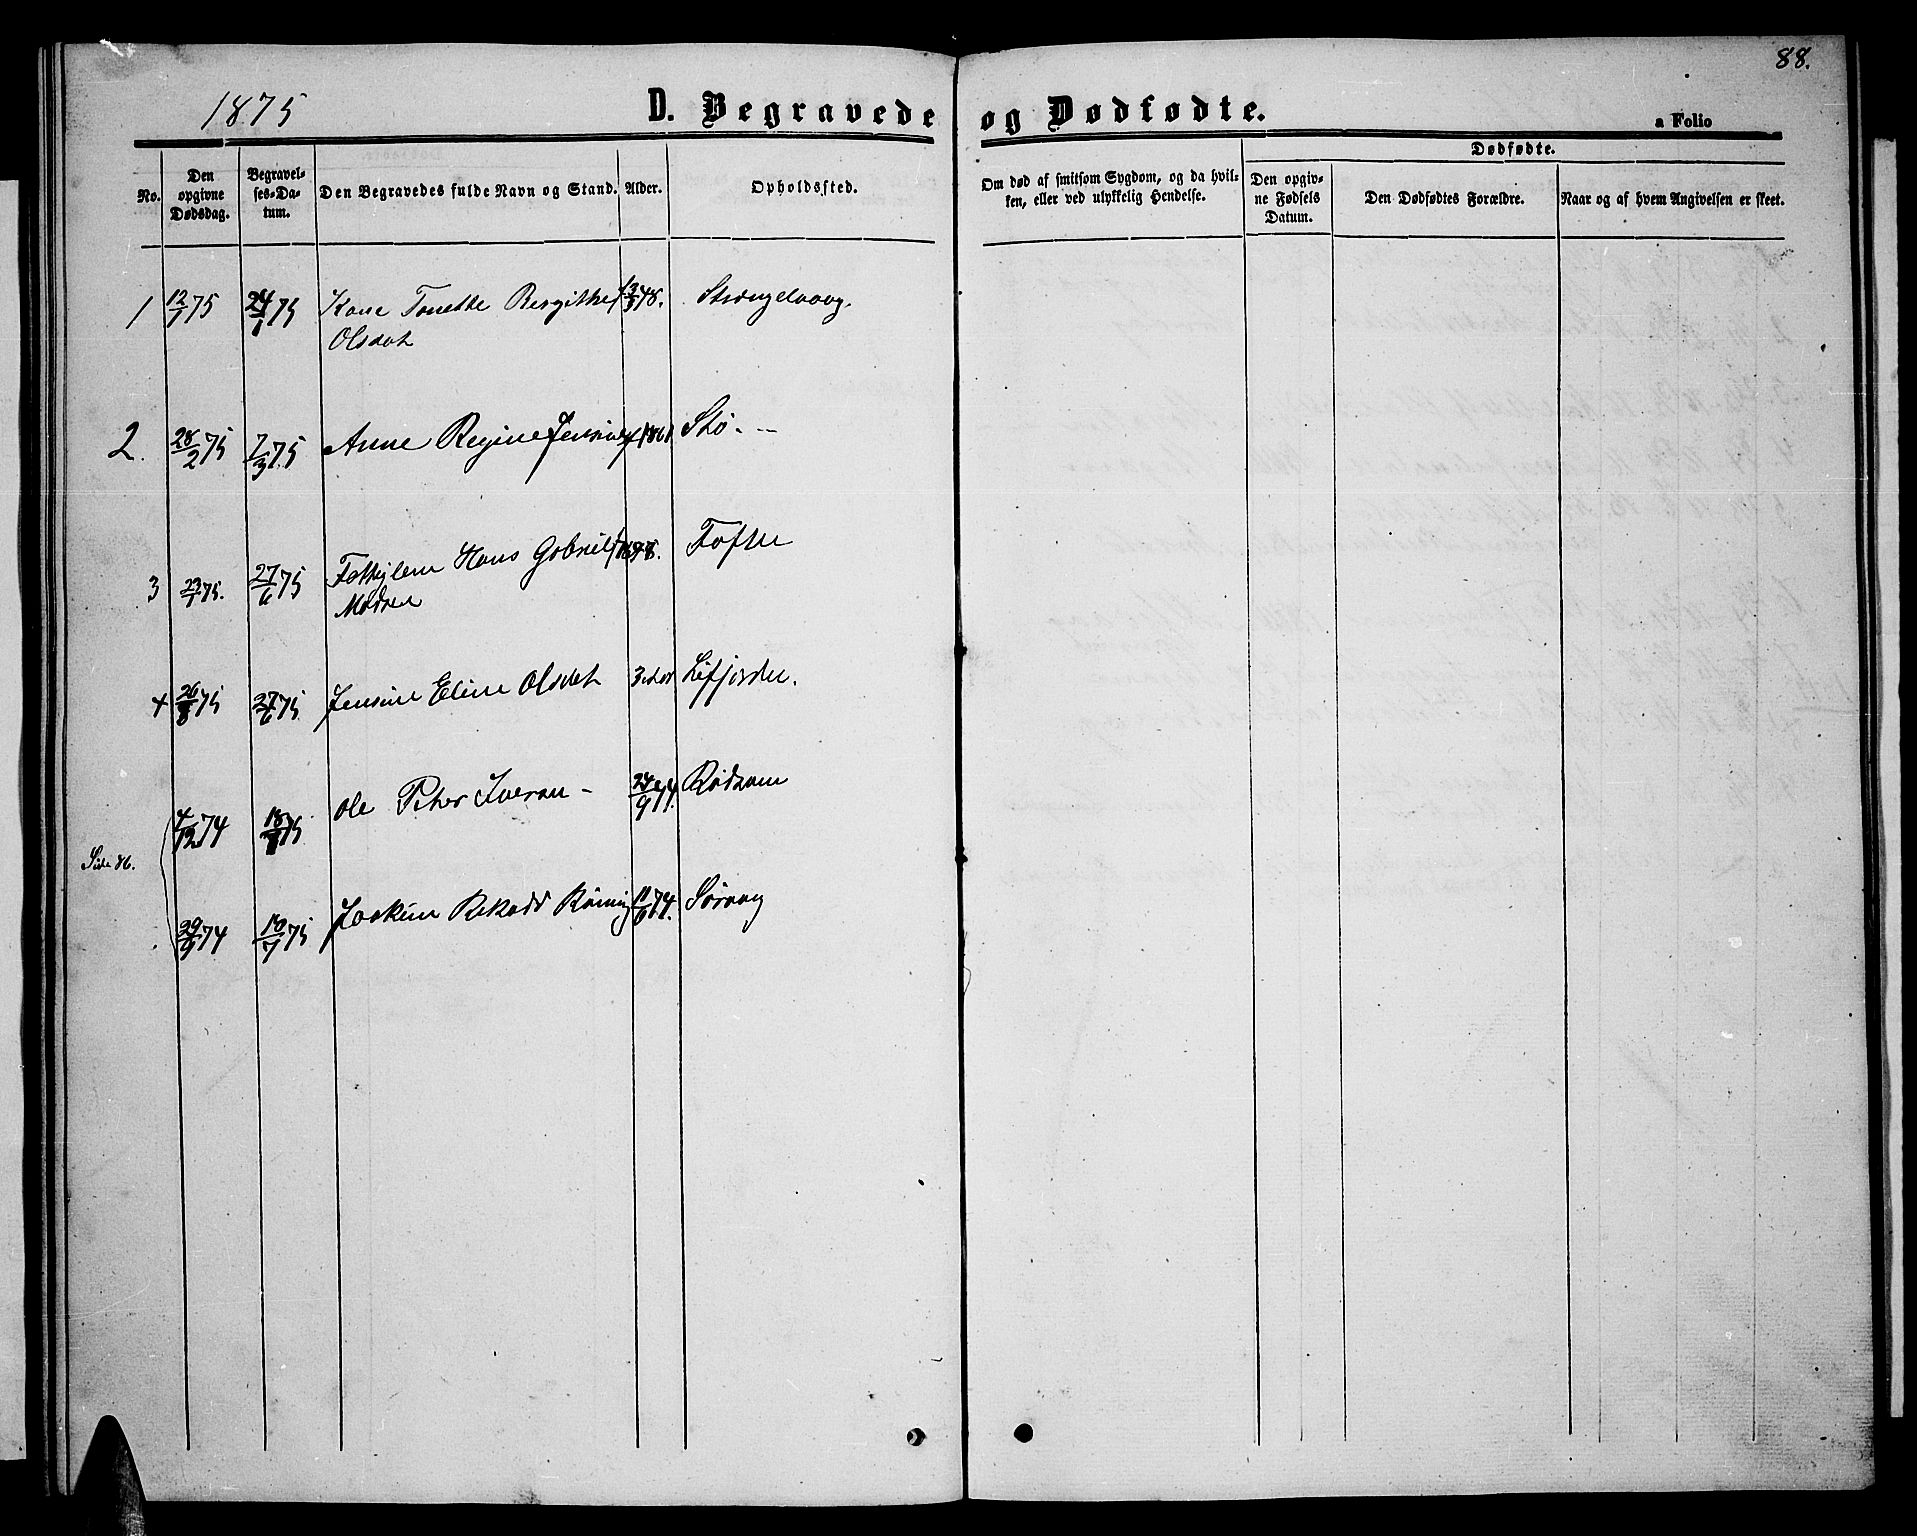 88.
1875
D. Begravede og Dødfødte.
a Folio
No.
Den opgivne Dødsdag.
Begravelses-Datum.
Den Begravedes fulde Navn og Stand.
Alder.
Opholdssted.
Om død af smitsom Sygdom, og da hvilken, eller ved ulykkelig Hendelse.
Dødfødte.
Den opgivne Fødsels Datum.
Den Dødfødtes Forældre.
Naar og af hvem Angivelsen er skeet.
1 12/1 75 24/1 75 Kone Tonette Bergitthe 48. Strengelvaag.
Olsdat
2. 28/2 75 7/3 75 Anne Regine Jensine 1861 Stø. -
3 23/1 75. 27/6 75 Hans Gabriel 1848. Tofte
Madsen
4 26/8 75 27/6 75 Jensine Eline Olsdat 3 Lifjorden.
4/12 74 18/7 75 Ole Peter Iversen - 24/9 74.
Side 86.
29/9 74 18/7 75 Joakim Rikard 11/6 74. Sørvaag